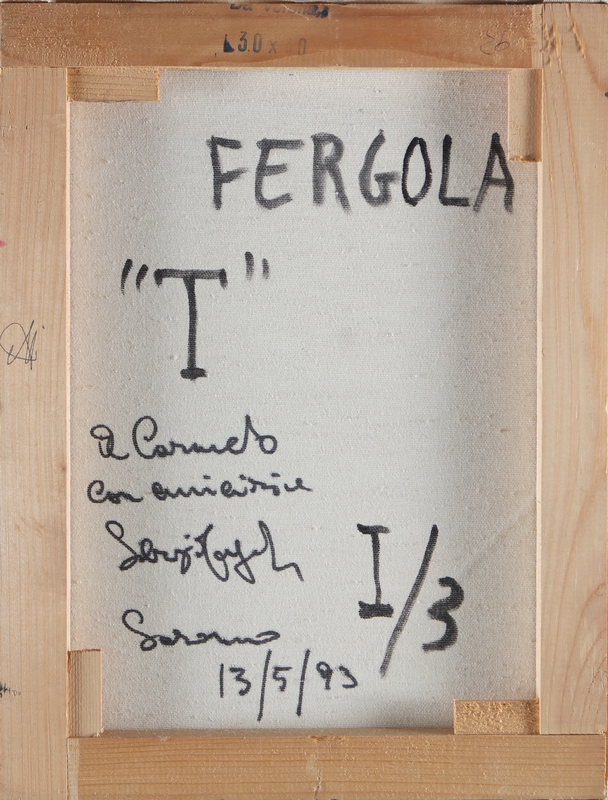 30 x 40
FERGOLA
"T"
A Carmelo
con amicizia
Sergio Fergola
I/3
13/5/93